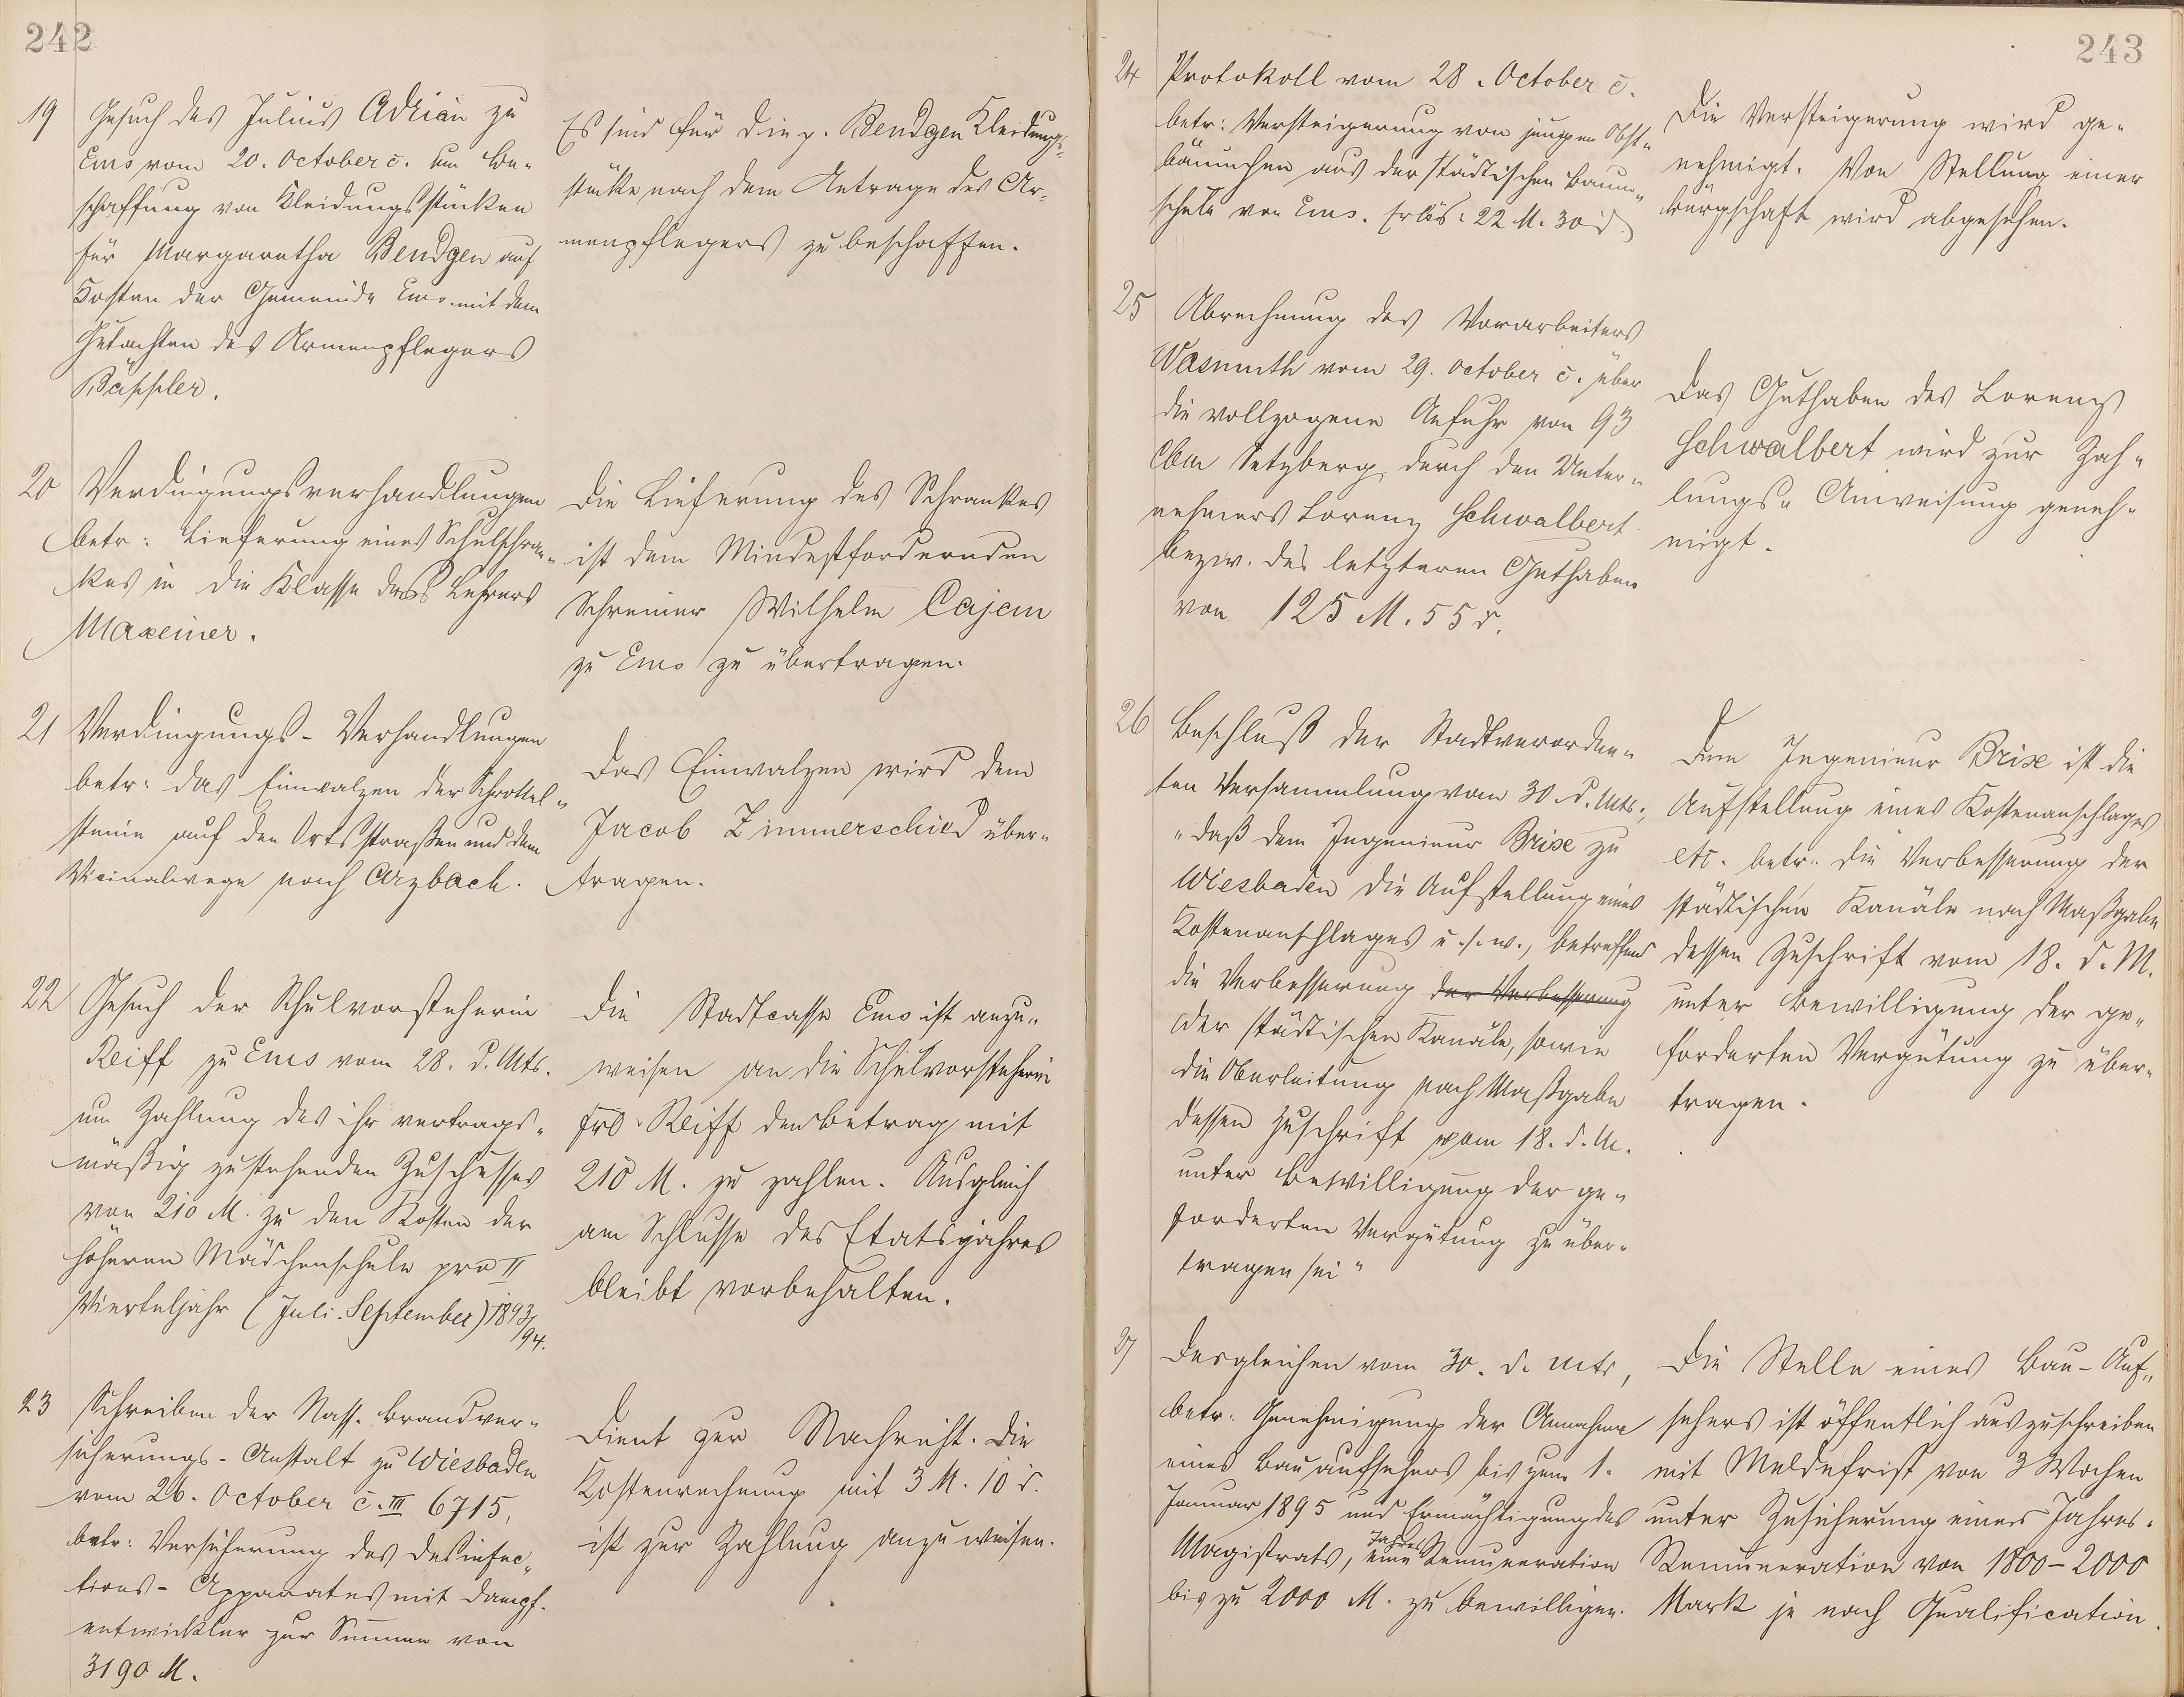 242
19 Gesuch des Julius Adrian zu
Ems vom 20. October c. um Be-
schaffung von Kleidungsstücken
für Margaretha Bendgen auf
Kosten der Gemeinde Ems mit dem
Gutachten des Armenpflegers
Bäppler.
Es sind für die p. Bendgen Kleidungs-
stücke nach dem Antrage des Ar-
menpflegers zu beschaffen.
20 Verdingungsverhandlungen
betr: Lieferung eines Schulschran-
kes in die Klasse des Lehrers
Maxeiner.
Die Lieferung des Schrankes
ist dem Mindestfordernden
Schreiner Wilhelm Cajem
zu Ems zu übertragen.
21 Verdingungs-Verhandlungen
betr: das Einwalzen der Schrottel-
steine auf den Ortsstraßen und dem
Vicinalwege nach Arzbach.
Das Einwalzen wird dem
Jacob Zimmerschied über-
tragen.
22 Gesuch der Schulvorsteherin
Reiff zu Ems vom 28. d. Mts.
um Zahlung des ihr vertrags-
mäßig zustehenden Zuschusses
von 210 M. zu den Kosten der
höheren Mädchenschule pro II
Vierteljahr (Juli-September) 1893/94.
Die Stadtcasse Ems ist anzu-
weisen an die Schulvorsteherin
Frl. Reiff den Betrag mit
210 M. zu zahlen. Ausgleich
am Schlusse des Etatsjahres
bleibt vorbehalten.
23 Schreiben der Nass. Brandver-
sicherungs-Anstalt zu Wiesbaden
vom 26. October c. III 6715,
betr: Versicherung des Desinfec-
tions-Apparates mit Dampf-
entwickler zur Summe von
3190 M.
Dient zur Nachricht. Die
Kostenrechnung mit 3 M. 10 d.
ist zur Zahlung anzuweisen.
243
24 Protokoll vom 28. October c.
betr: Versteigerung von jungen Obst-
bäumchen aus der städtischen Baum-
schule von Ems. Erlös: 22 M. 30 d.
Die Versteigerung wird ge-
nehmigt. Von Stellung einer
Bürgschaft wird abgesehen.
25 Abrechnung des Vorarbeiters
Wasmuth vom 29. October c. über
die vollzogene Anfuhr von 93
Cbm Setzberg durch den Unter-
nehmers Lorenz Schwalbert
bezw. des letzteren Guthaben
von 125 M. 55 d.
Das Guthaben des Lorenz
Schwalbert wird zur Zah-
lungs-Anweisung geneh-
migt.
26 Beschluß der Stadtverordne-
ten Versammlung vom 30. d. Mts.,
"daß dem Ingenieur Brix zu
Wiesbaden die Aufstellung eines
Kostenanschlages u. s. w., betreffend
die Verbesserung der Verbesserung
der städtischen Kanäle, sowie
die Oberleitung nach Maßgabe
dessen Zuschrift vom 18. d. M.
unter Bewilligung der ge-
forderten Vergütung zu über-
tragen sei"
Dem Ingenieur Brix ist die
Aufstellung eines Kostenanschlages
etc. betr. die Verbesserung der
städtischen Kanäle nach Maßgabe
dessen Zuschrift vom 18. d. M.
unter Bewilligung der ge-
forderten Vergütung zu über-
tragen.
27 Desgleichen vom 30. d. Mts,
betr. Genehmigung der Annahme
eines Bauaufsehers bis zum 1.
Januar 1895 und Ermächtigung des
Magistrats, eine Jahres Remuneration
bis zu 2000 M. zu bewilligen.
Die Stelle eines Bau-Auf-
sehers ist öffentlich auszuschreiben
mit Meldefrist von 3 Wochen
unter Zusicherung eines Jahres-
Remuneration von 1800-2000
Mark je nach Qualification.